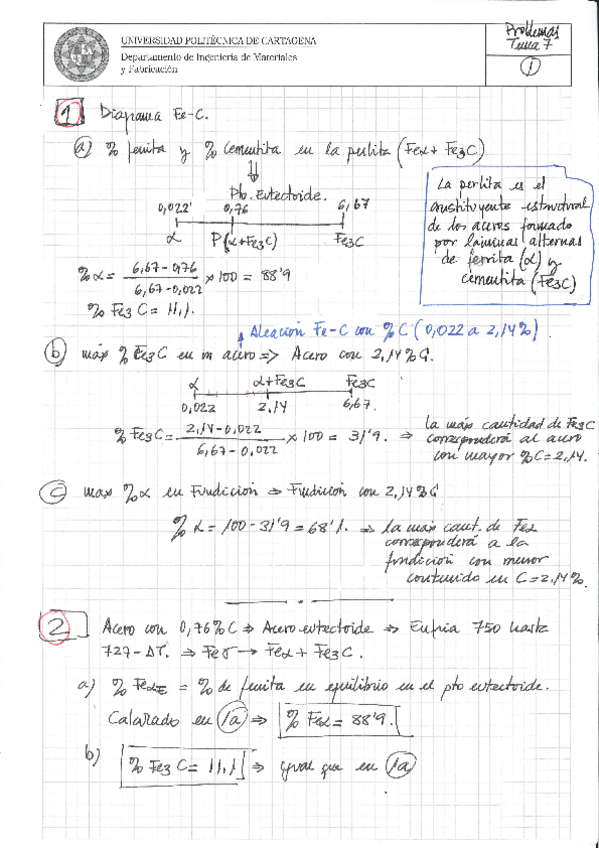 UNIVERSIDAD POLITÉCNICA DE CARTAGENA
Departamento de Ingeniería de Materiales
y Fabricación
Problemas
Tema 7
1
1 Diagrama Fe-C.
a) % ferrita y % cementita en la perlita (Feα + Fe3C)
⇓
Pto. Eutectoide.
0,022 0,76 6,67
α P(α+Fe3C) Fe3C
La perlita es el
constituyente estructural
de los aceros formado
por láminas alternas
de ferrita (α) y
cementita (Fe3C)
%α = (6,67-0,76)/(6,67-0,022) × 100 = 88'9
% Fe3C = 11,1.
Aleación Fe-C con %C (0,022 a 2,14%)
b) máx % Fe3C en un acero => Acero con 2,14%C.
α α+Fe3C Fe3C
0,022 2,14 6,67.
% Fe3C = (2,14-0,022)/(6,67-0,022) × 100 = 31'9. ⇒ la máx cantidad de Fe3C
corresponderá al acero
con mayor %C=2,14.
c) max %α en Fundición ⇒ Fundición con 2,14%C
% α = 100-31'9 = 68'1. ⇒ la max cant. de Feα
corresponderá a la
fundición con menor
contenido en C=2,14%.
2 Acero con 0,76%C ⇒ Acero eutectoide ⇒ Enfria 750 hasta
727-ΔT. ⇒ Feγ → Feα + Fe3C.
a) % FeαE = % de ferrita en equilibrio en el pto eutectoide.
Calculado en 1a ⇒ % Feα = 88'9.
b) % Fe3C = 11,1 ⇒ igual que en 1a